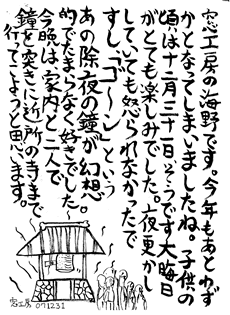 窓工房の海野です。今年もあとわず
かとなってしまいましたね。子供の
頃は十二月三十一日、そうです大晦日
がとても楽しみでした。夜更かし
していても怒られなかったで
すし、「ゴ〜ン」という
あの除夜の鐘が幻想
的でたまらなく好きでした。
今晩は、家内と二人で
鐘を突きに近所の寺まで
行ってこようと思います。
窓工房 071231